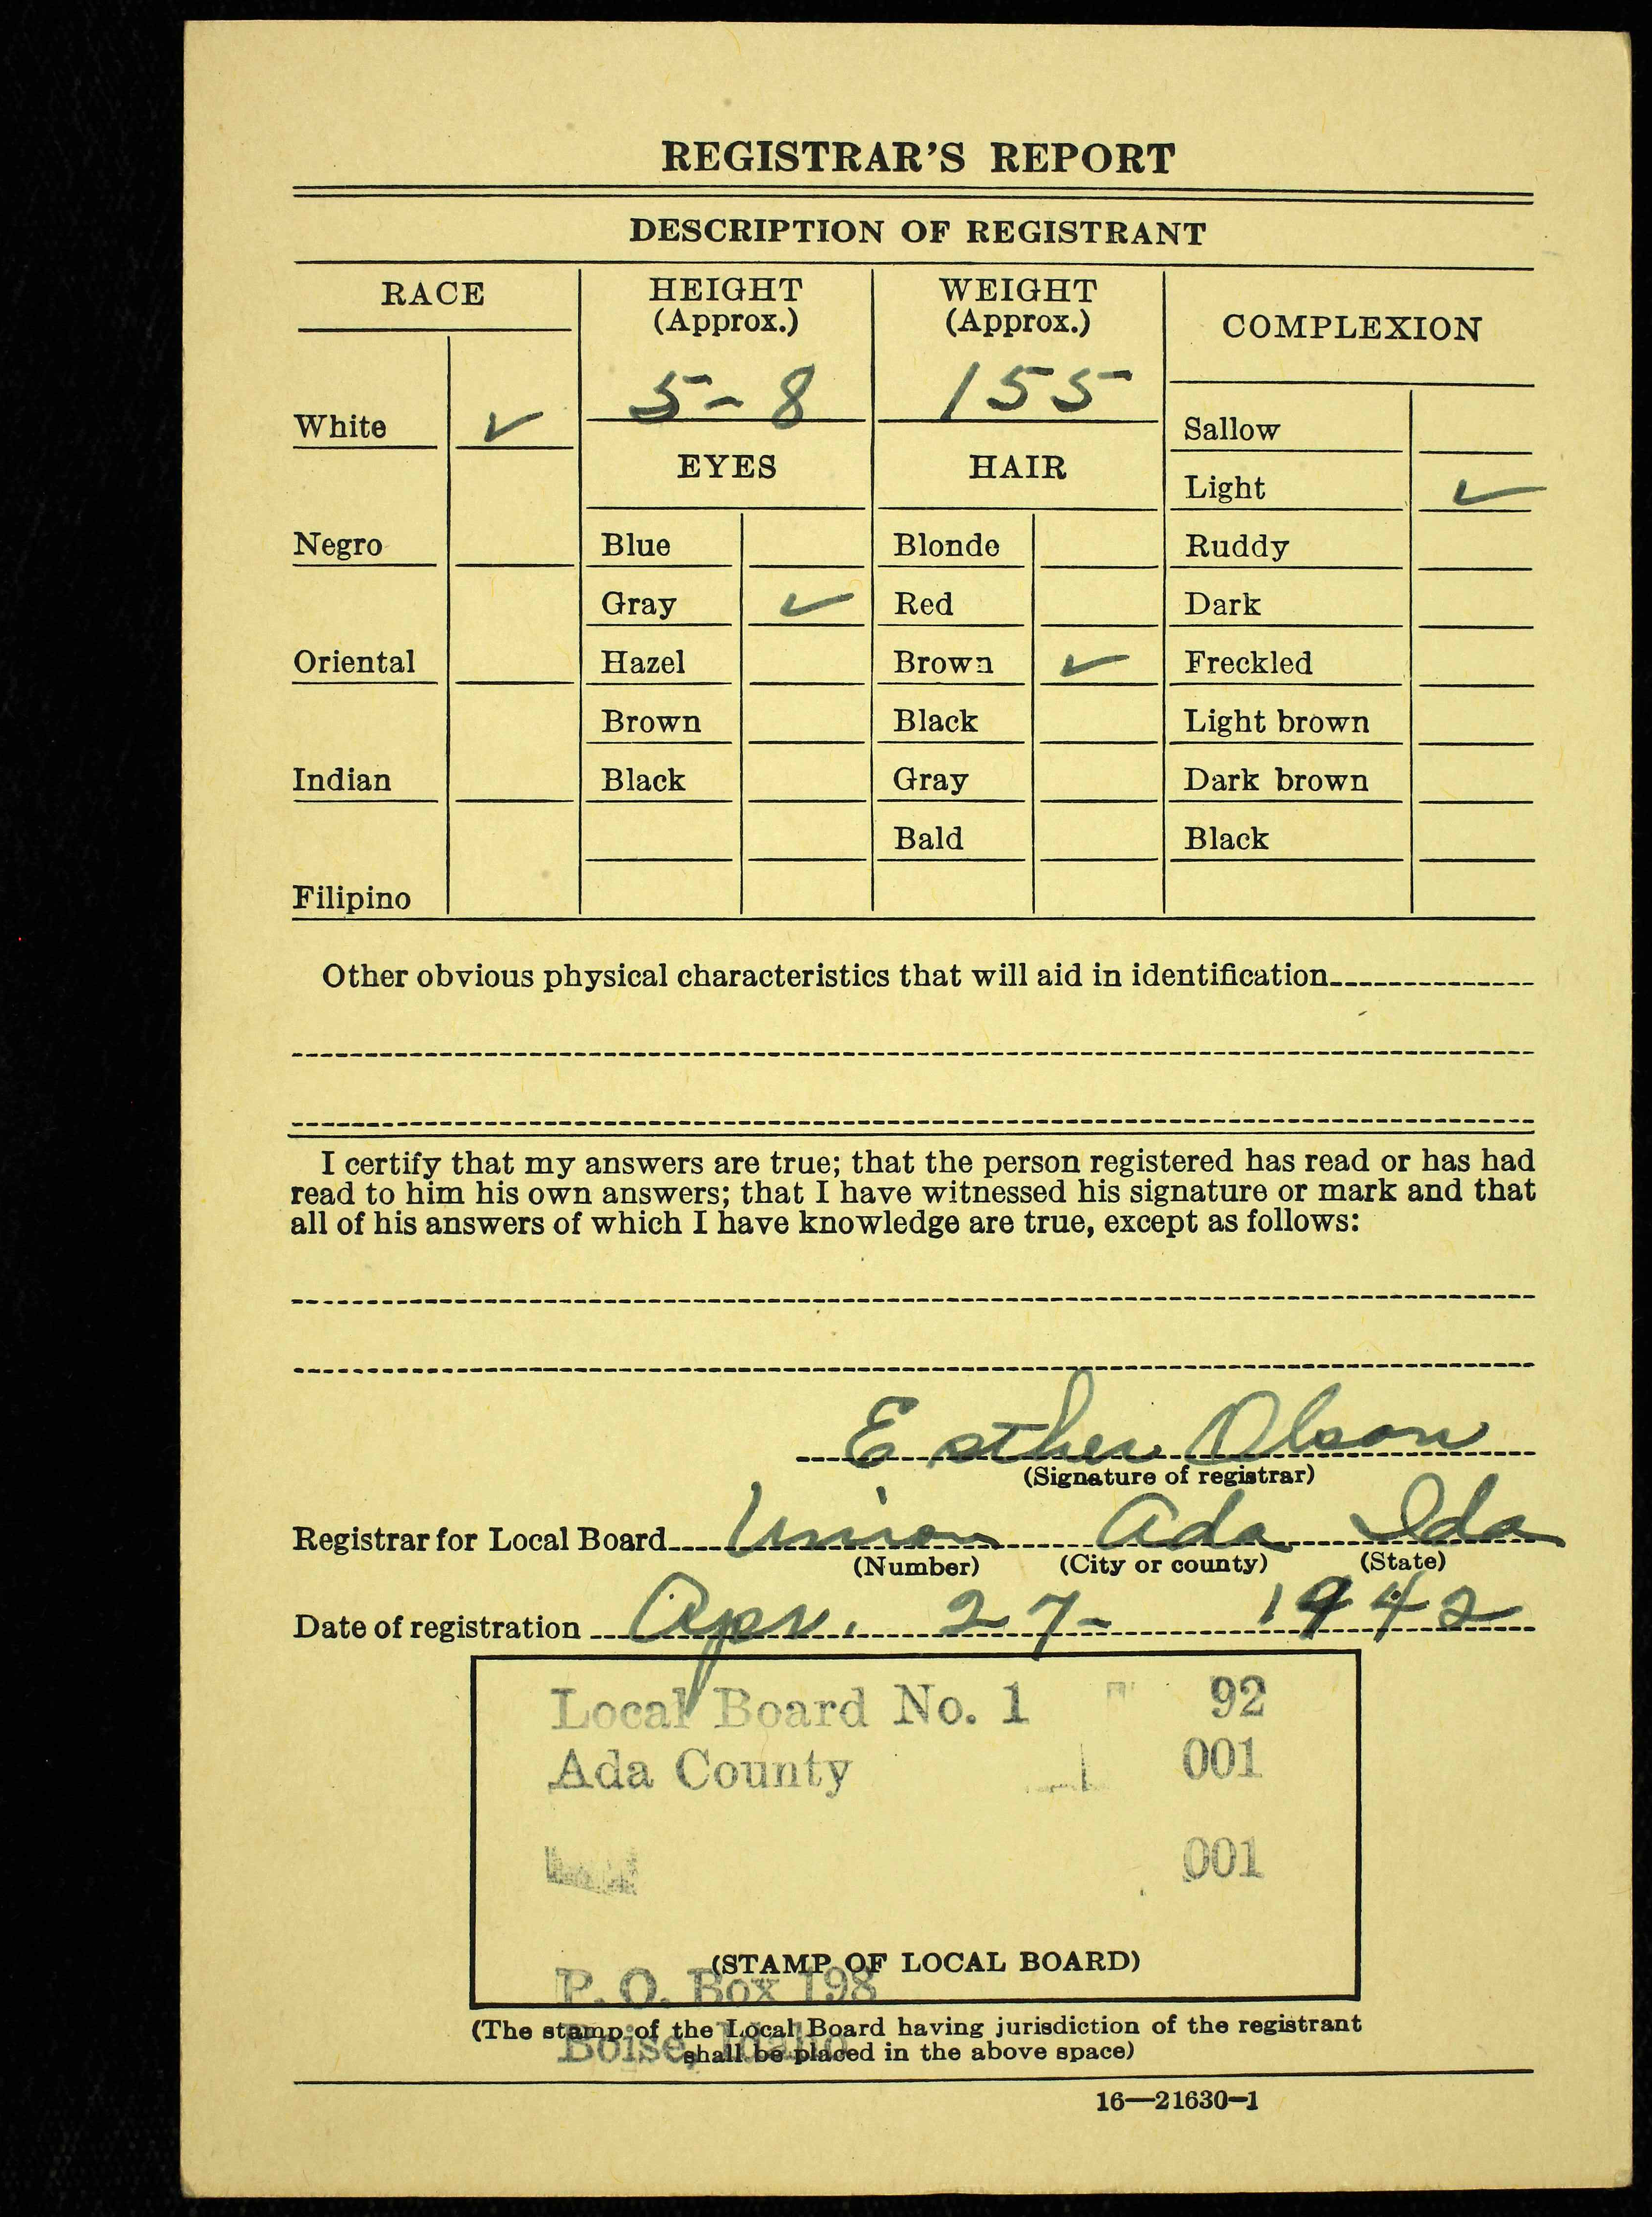 REGISTRAR'S REPORT
DESCRIPTION OF REGISTRANT
RACE
HEIGHT (Approx.)
WEIGHT (Approx.)
COMPLEXION
5-8
155
White ✓
Sallow
EYES
HAIR
Light ✓
Negro
Blue
Blonde
Ruddy
Gray ✓
Red
Dark
Oriental
Hazel
Brown ✓
Freckled
Brown
Black
Light brown
Indian
Black
Gray
Dark brown
Bald
Black
Filipino
Other obvious physical characteristics that will aid in identification
I certify that my answers are true; that the person registered has read or has had
read to him his own answers; that I have witnessed his signature or mark and that
all of his answers of which I have knowledge are true, except as follows:
Esther Olson
(Signature of registrar)
Registrar for Local Board Union Ada Ida
(Number) (City or county) (State)
Date of registration Apr. 27- 1942
Local Board No. 1 92
Ada County 001
001
(STAMP OF LOCAL BOARD)
P. O. Box 198
(The stamp of the Local Board having jurisdiction of the registrant
Boise, Idaho
shall be placed in the above space)
16—21630-1